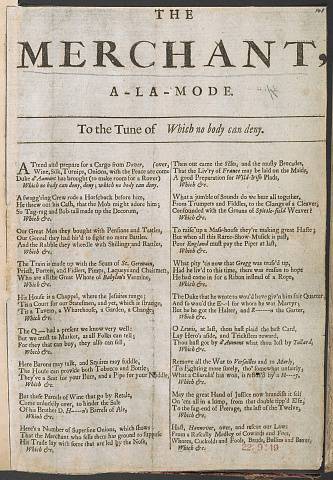 THE
MERCHANT,
A-LA-MODE.
To the Tune of Which no body can deny.
ATtend and prepare for a Cargo from Dover, (over,
Wine, Silk, Turnips, Onions, with the Peace are come
Duke d'Aumont has brought (to make room for a Rover)
Which no body can deny, deny; which no body can deny.
A swaggering Crew rode a Horseback before him,
He threw out his Cash, that the Mob might adore him;
So Tag-rag and Bob-tail made up the Decorum,
Which &c.
Our Great Men they bought with Persuns and Tattles,
Our Good they had he'd to gain
And the Rabble they wheedle with Shillings and Rattles,
Which &c.
The Train is made up with the Scum of St. German,
Priests, Porters, and Fidlers, Pimps, Laqueys and Chairmen,
Who are all the Great Whore of Babylon's Vermine,
Which &c.
His House is a Chappel, where the Jesuites range;
'Tis a Court for our Statesmen, and yet, which is strange,
'Tis a Tavern, a Warehouse, a Garden, a Change,
Which &c.
The Q— had a present we know very well:
But we must be Market, as all Folks can tell;
For they that can buy, they also can sell,
Which &c.
Here Barons may talk, and Squires may fuddle,
The House can provide both Tobacco and Bottle;
They've a Seat for your Bum, and a Pipe for your Noddle,
Which &c.
But those Parcels of Wine that go by Retale,
Come unluckily over, to hinder the Sale
Of his Brother D. H——'s Barrels of Ale,
Which &c.
Here's a Number of Superfine Onions, which shows
That the Merchant who sells them has ground to suppose
His Trade lay with some that are led by the Nose,
Which &c.
Then out came the Silks, and the musty Brocades,
That the Liv'ry of France may be laid on the Maids,
A good Preparation for Wild-Irish Plads,
Which &c.
What a jumble of Sounds do we hear all together,
From Trumpets and Fiddles, to the Clangor of a Cleaver;
Confounded with the Groans of Spittle-fields Weaver!
Which &c.
To raise up a Musick-house they're making great Haste;
But when all this Raree-Show-Musick is past,
Poor England must pay the Piper at last,
Which &c.
What pity 'tis now that Gregg was truss'd up,
Had he liv'd to this time, there was reason to hope
He had come in for a Ribon instead of a Rope,
Which &c.
The Duke that he wrote to wou'd have giv'n him fair Quarter
And so wou'd the E—l for whom he was Martyr;
But he has got the Halter, and R———n the Garter,
Which &c.
O Lewis, at last, thou hast plaid the best Card,
Lay Hero's aside, and Tricksters reward,
Thou hast got by d'Aumont what thou lost by Tallard,
Which &c.
Remove all the War to Versailles and to Marly,
'Tis Fighting more surely, tho' somewhat unfairly,
What a Churchill has won, is refunded by a H—y,
Which &c.
May the great Hand of Justice now brandish it self
On 'em all in a lump, from that double tipp'd Elf,
To the fag-end of Peerage, the last of the Twelve,
Which &c.
Haste, Hannover, over, and rescue our Laws
From a Rascally Medley of Cowards and Foes,
Whores, Cuckolds and Fools, Bauds, Bullies and Beaux,
Which &c.